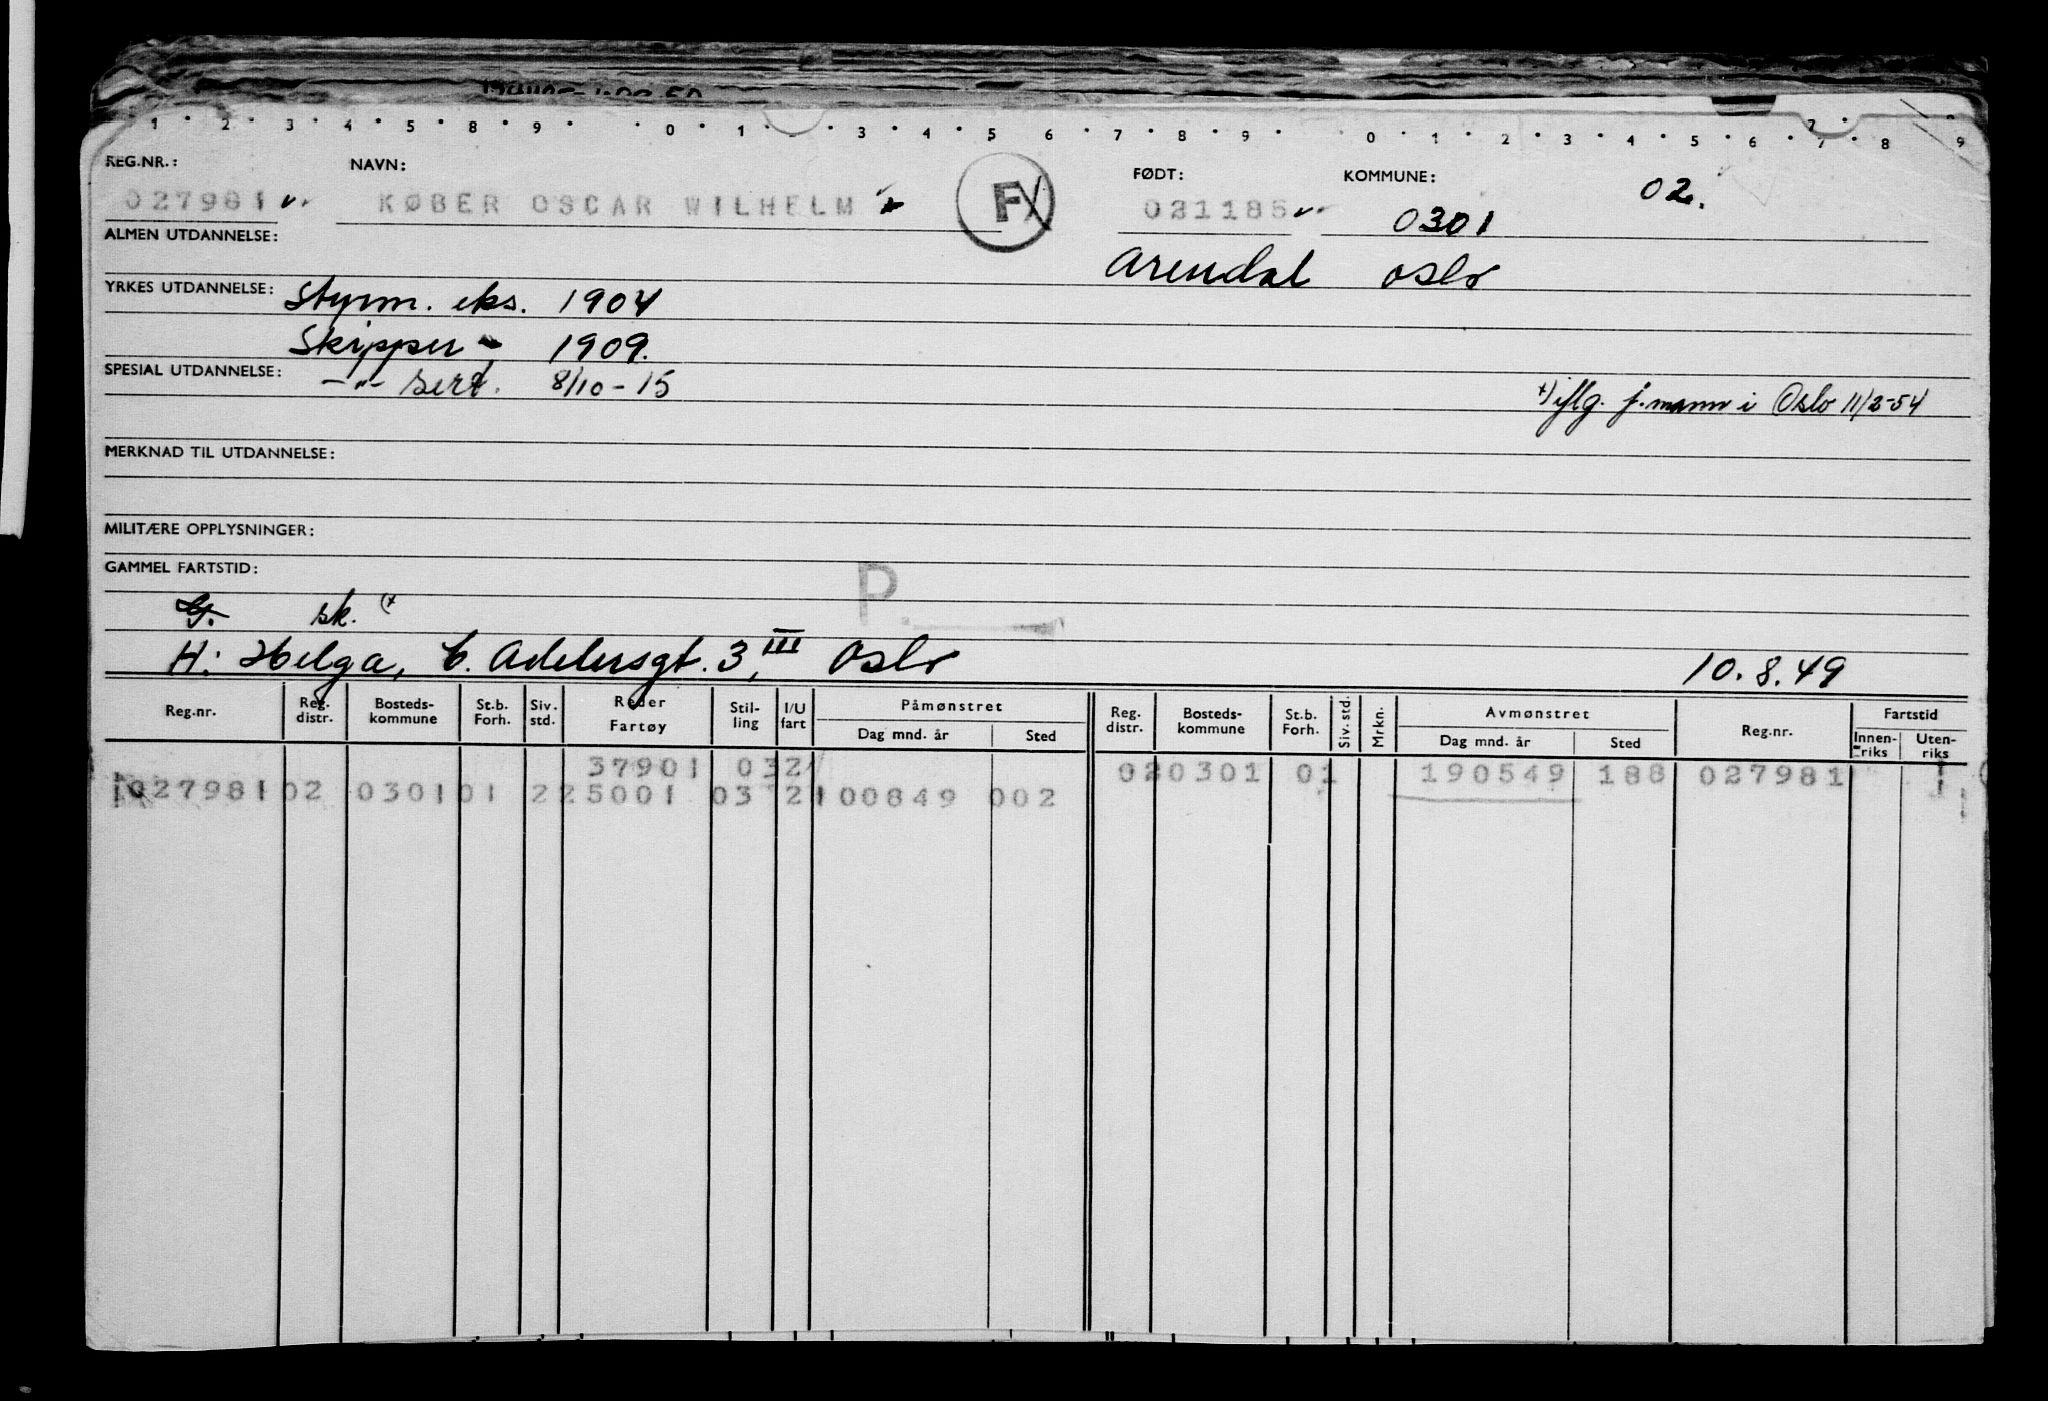 1 2 3 4 5 8 9 0 1 3 4 5 6 7 8 9 0 1 2 3 4 5 6 7 8 9
REG.NR.: NAVN: FØDT: KOMMUNE:
027981 KØBER OSCAR WILHELM F 021185 0301 02.
ALMEN UTDANNELSE: Arendal Oslo
YRKES UTDANNELSE: Styrm. eks. 1904
Skipper " 1909.
SPESIAL UTDANNELSE: -"- sert. 8/10-15 +) iflg. j.mann i Oslo 11/2-54
MERKNAD TIL UTDANNELSE:
MILITÆRE OPPLYSNINGER:
GAMMEL FARTSTID: P.
sk. (+
H: Helga, C. Adelersgt. 3, III Oslo 10.8.49
Reg.nr. Reg. distr. Bosteds-kommune St.b. Forh. Siv. std. Reder Fartøy Stil-ling I/U fart Påmønstret Dag mnd. år Sted Reg. distr. Bosteds-kommune St.b. Forh. Siv. std. Mrkn. Avmønstret Dag mnd. år Sted Reg.nr. Fartstid Innen-riks Uten-riks
37901 03 2 02 0301 01 190549 188 027981
027981 02 0301 01 2 25001 03 2 100849 002